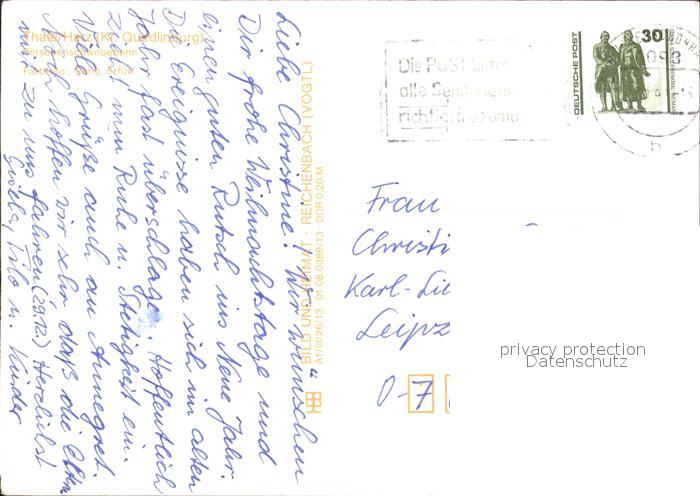 Thale/Harz (Kr. Quedlinburg)
Personenschwebebahn
Liebe Christine! Wir wünschen
Dir frohe Weihnachtstage und
einen guten Rutsch ins Neue Jahr.
Die Ereignisse haben sich im alten
Jahr fast überschlagen. Hoffentlich
zieht nun Ruhe u. Stetigkeit ein.
Viele Grüße auch an Annegret.
Auch hoffen wir sehr, daß die Eltern
mit zu uns fahren (29.12.) Herzlichst
Kinder
BILD UND HEIMAT · REICHENBACH (VOGTL)
A1/III/26/13 01 08 0369/13 · DDR 0,20 M
Die POST bittet
alle Sendungen
richtig freizumachen
DEUTSCHE POST
30
Frau
Christi
Karl-Li
Leipz
O-7
privacy protection
Datenschutz